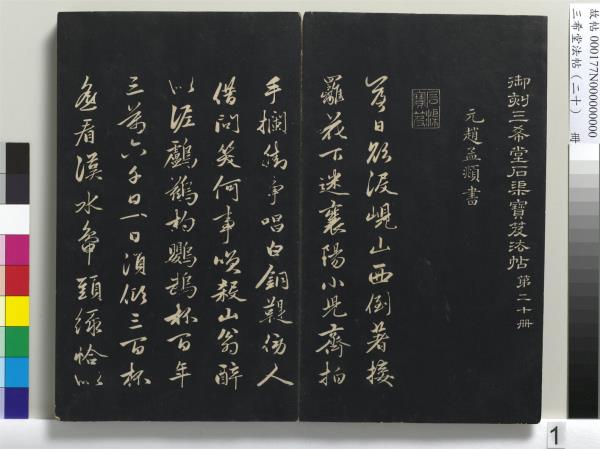 故帖 000177N000000000
三希堂法帖(二十) 冊
御刻三希堂石渠寶笈法帖 第二十冊
元趙孟頫書
落日欲沒峴山西倒著接
羅花下迷襄陽小兒齊拍
手攔街爭唱白銅鞮傍人
借問笑何事笑殺山翁醉
似泥鸕鶿杓鸚鵡杯百年
三萬六千日一日須傾三百杯
遙看漢水鴨頭綠恰似
1